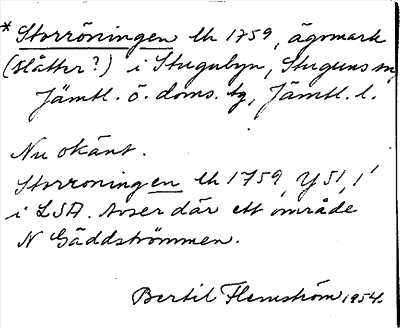 * Storröningen lh 1759, ägomark
(slåtter?) i Stugubyn, Stuguns sn
Jämtl. ö. doms. tg, Jämtl. l.
Nu okänt.
Storroningen lh 1759, Y51, 1'
i LSA. Avser där ett område
N Gäddströmmen.
Bertil Flemström 1954.